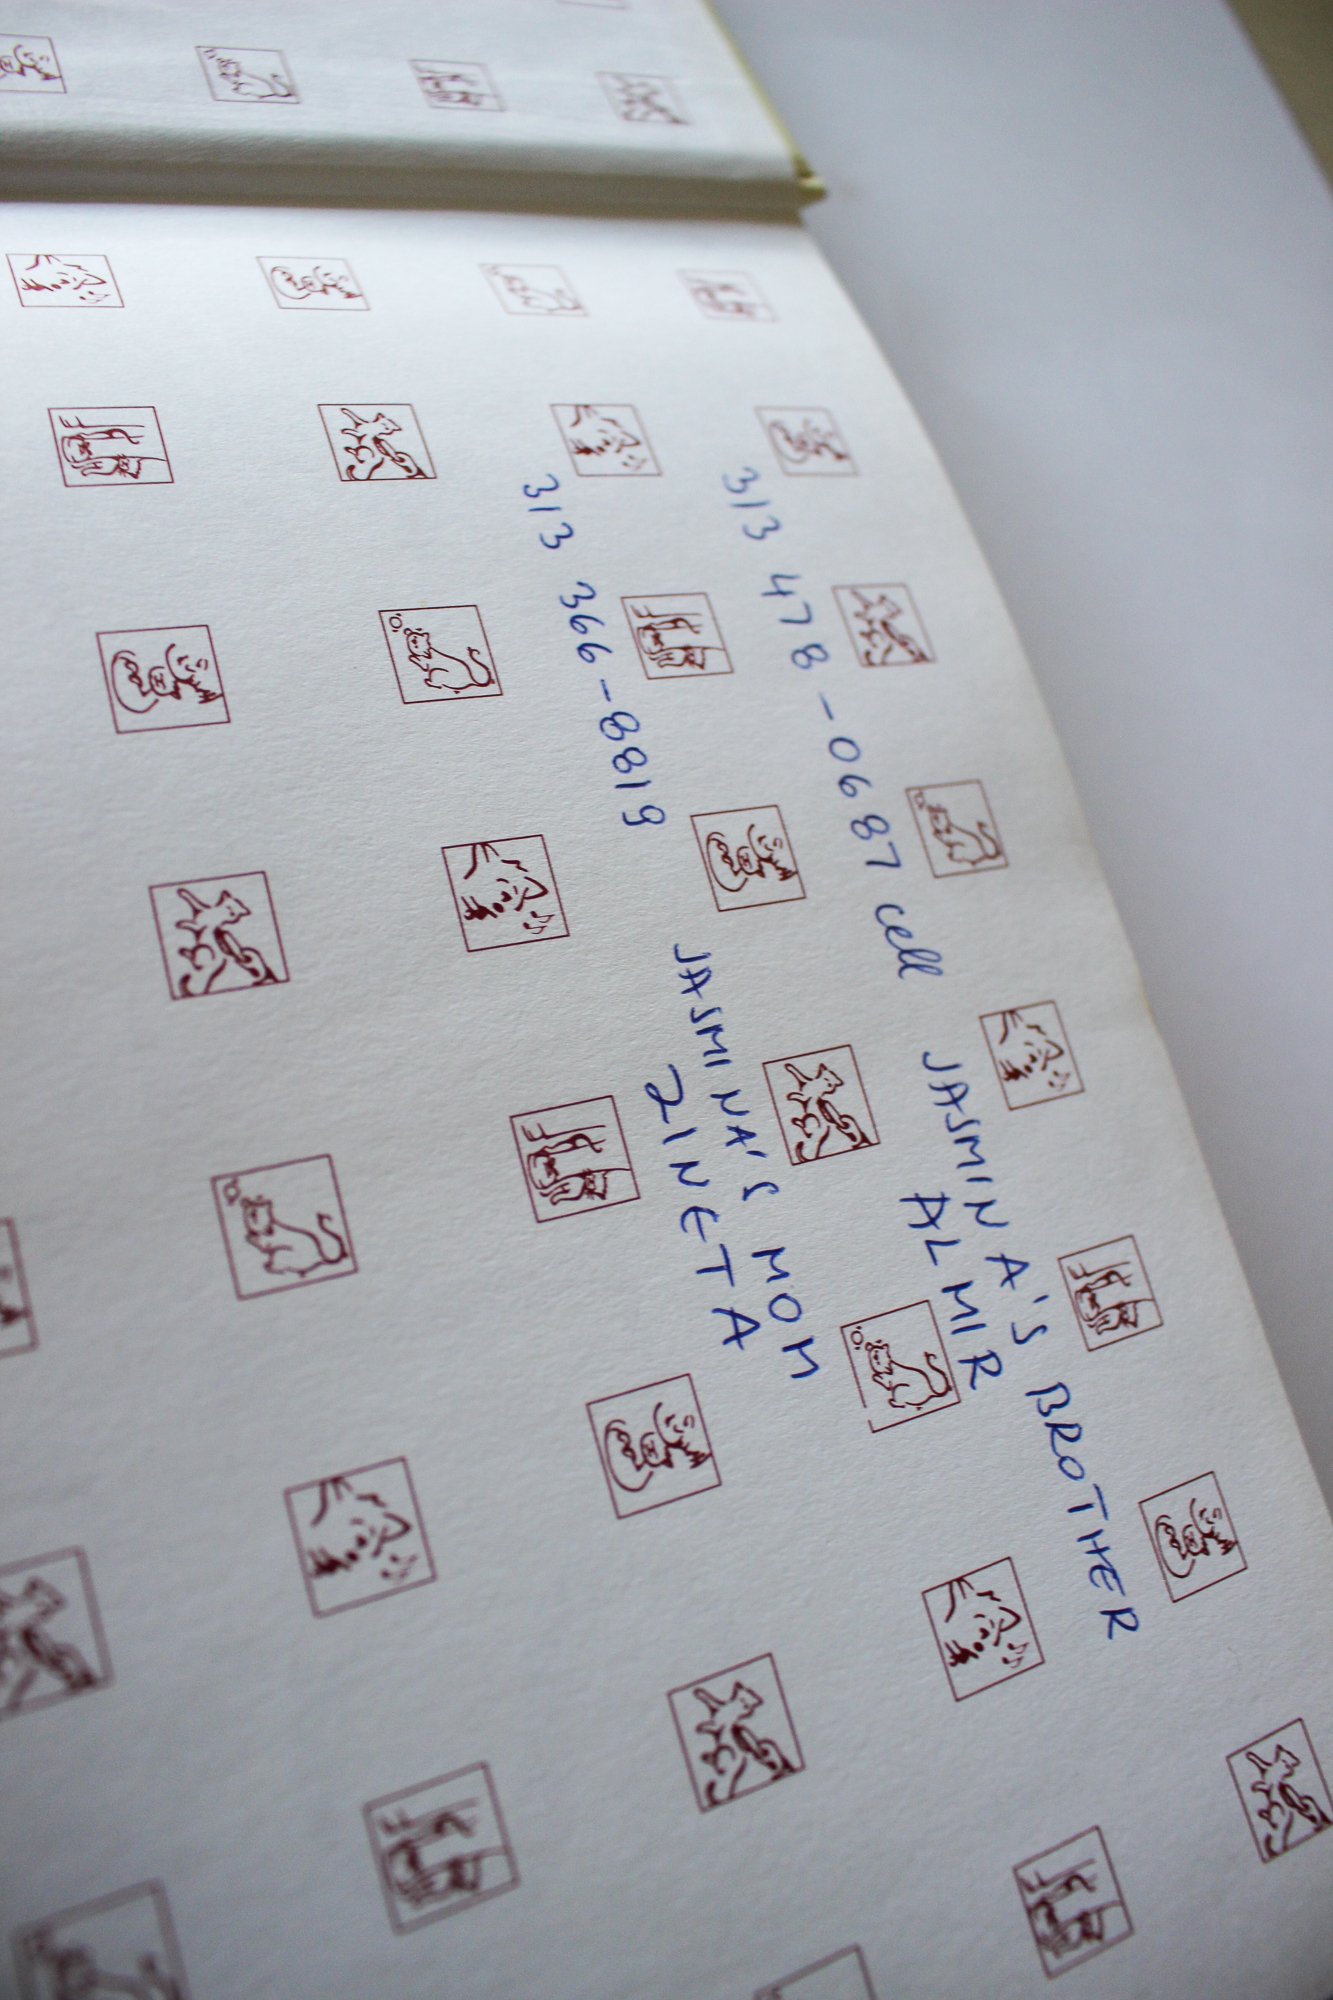 313 478-0687 cell JASMINA'S BROTHER
ALMIR
313 366-8819 JASMINA'S MOM
ZINETA